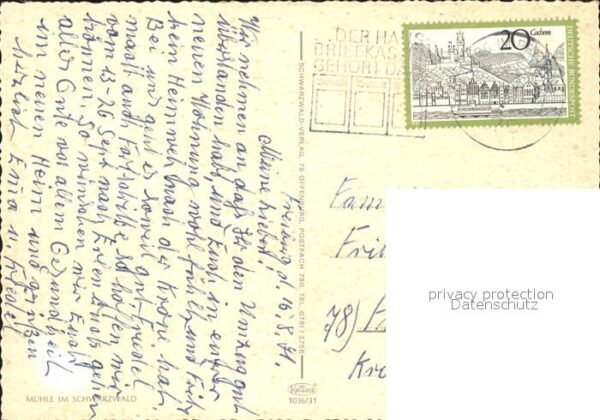 Freiburg d. 6.8.71.
Meine Lieben!
Wir nehmen an daß Ihr den Umzug gut
überstanden habt, und Euch in eurer
neuen Wohnung wohl fühlt, und Frid
kein Heimweh nach der Krone hat.
Bei uns geht es soweit gut. Friedel
macht auch Fortschritte. So hoffen wir
vom 23-26 Sept. nach gehn
können. So wünschen wir Euch
alles Gute vor allem Gesundheit
im neuen Heim und grüßen
herzlich Erna u. Friedel
MÜHLE IM SCHWARZWALD
SCHWARZWALD-VERLAG, 76 OFFENBURG, POSTFACH 780, TEL. 0781/3756
KRÜGER
1036/31
DER HA
BRIEFKAS
GEHÖRT DA
20
Cochem
DEUTSCHE BUNDESPOST
Fam
Frid
78)
Kro
privacy protection
Datenschutz